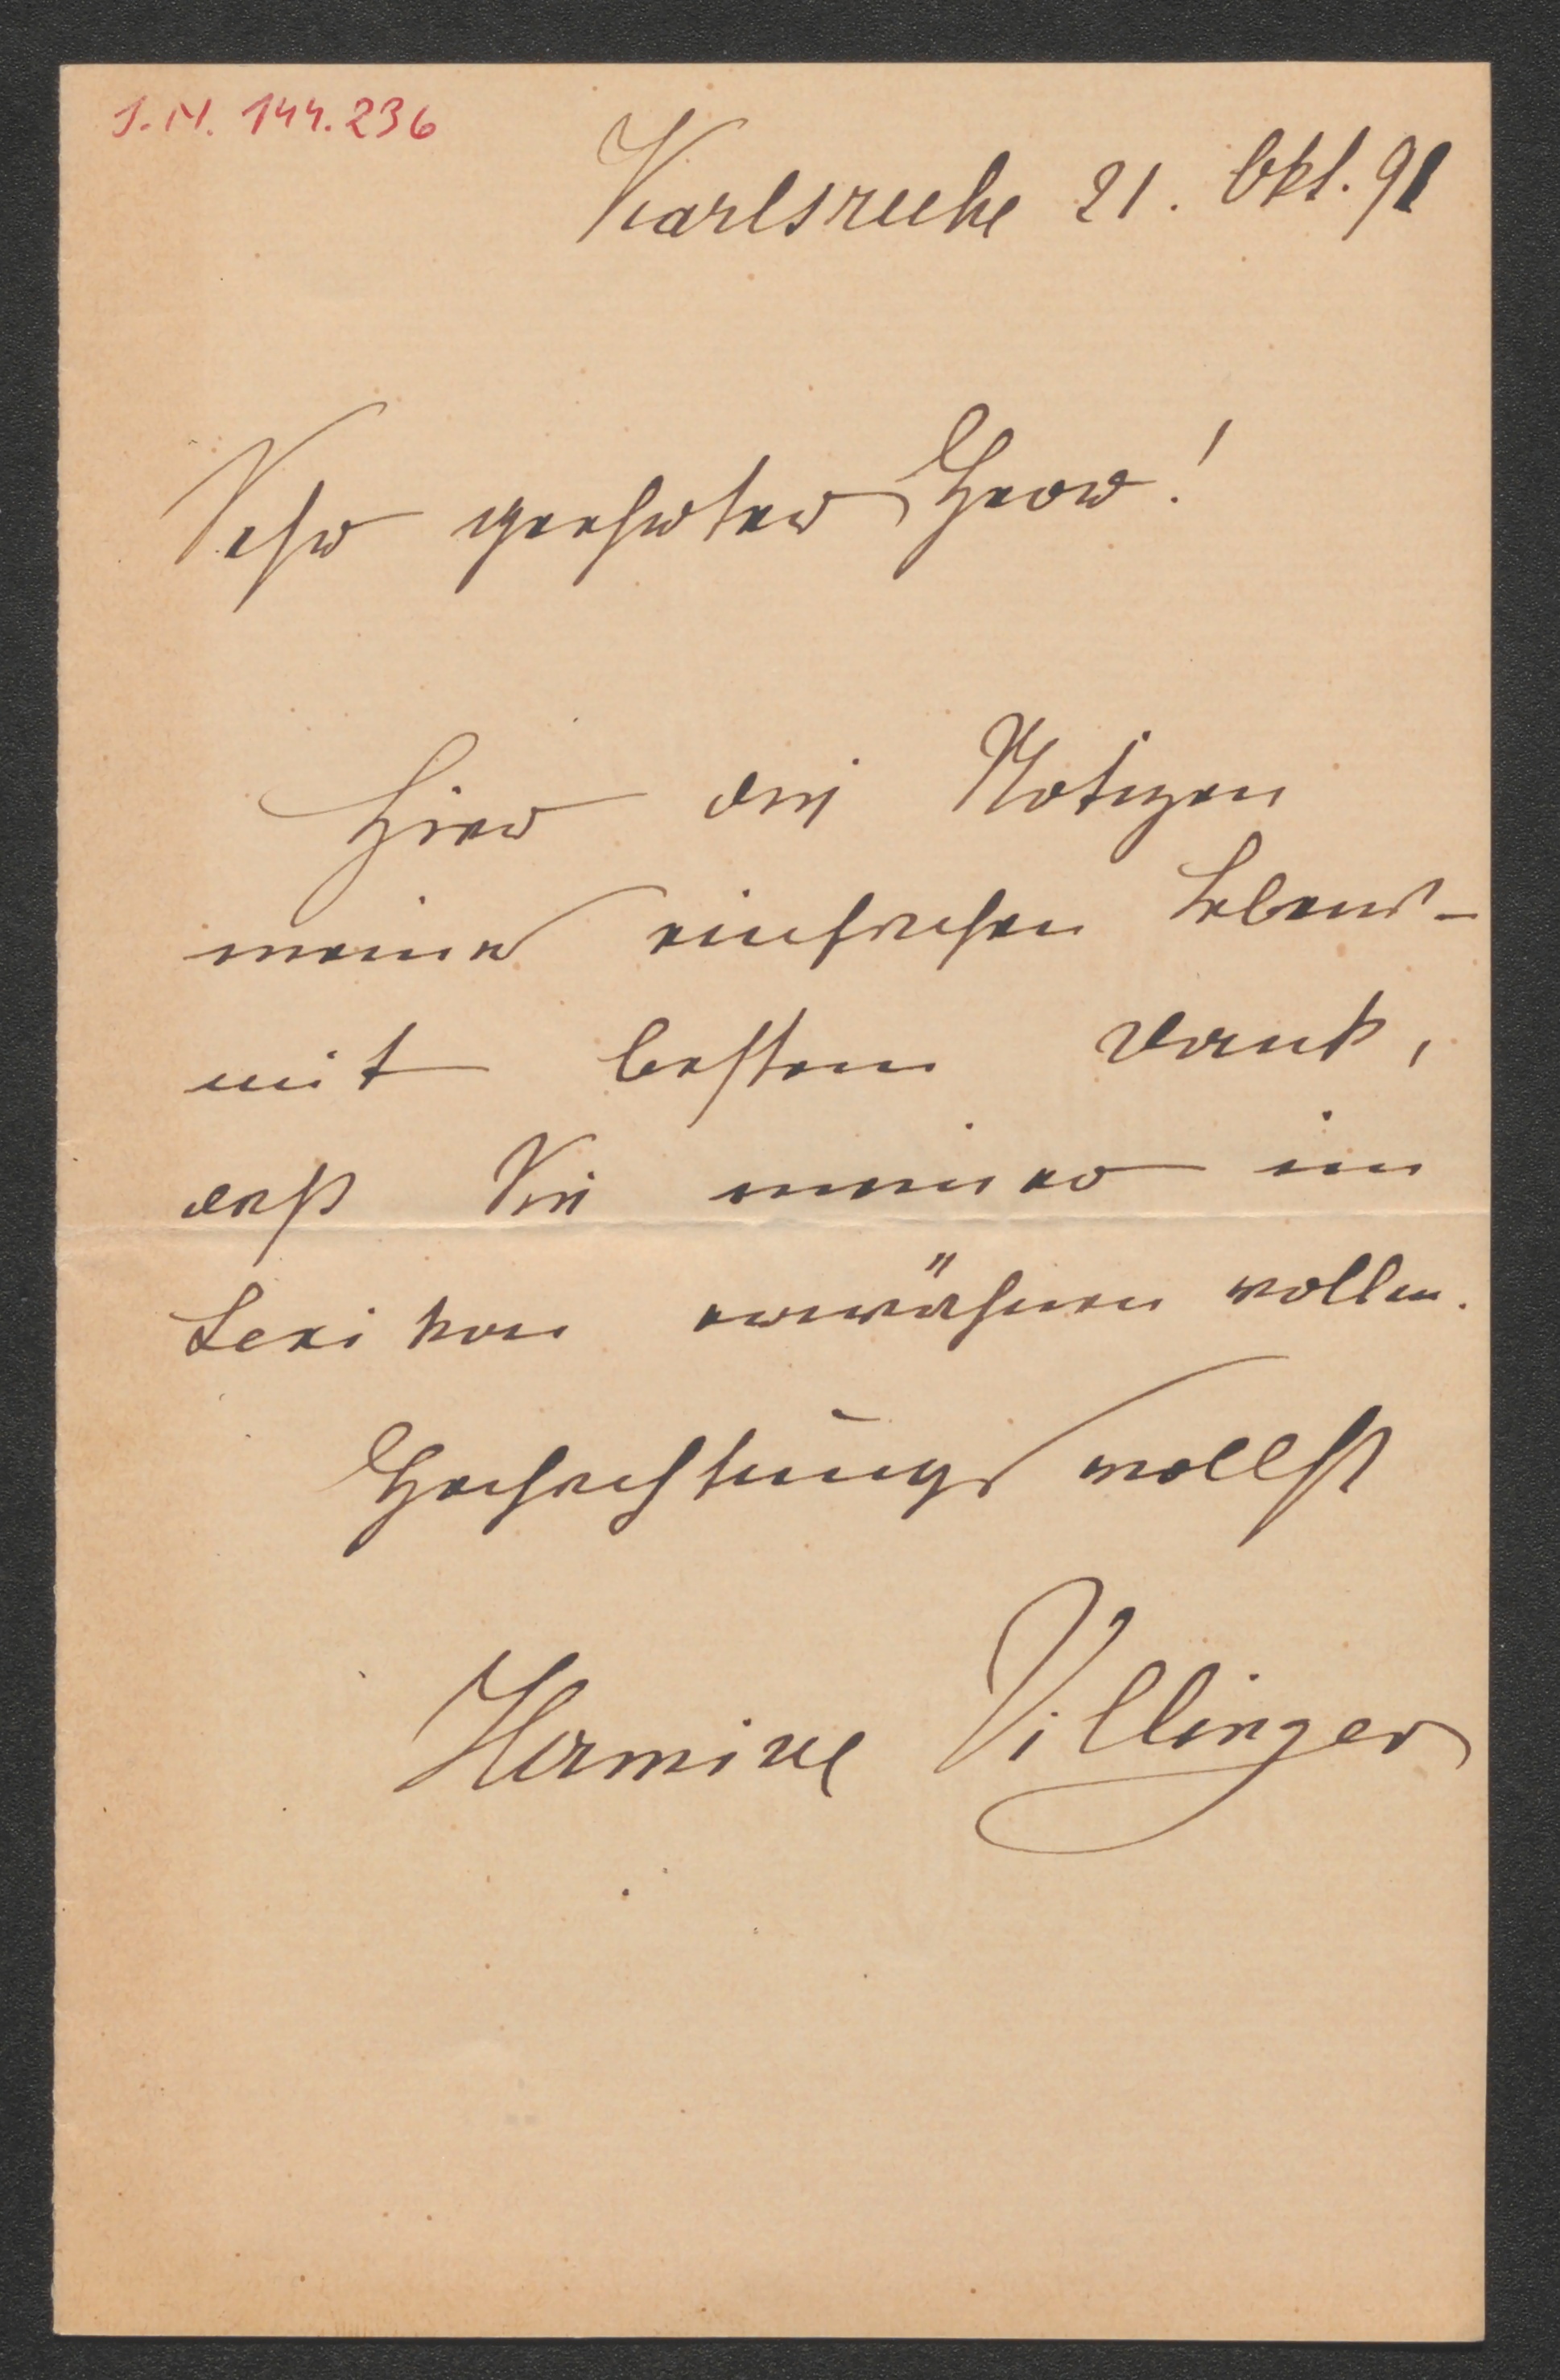 J.N. 144.236
Karlsruhe 21. Okt. 91
Sehr geehrter Herr!
Hier die Notizen
meines einfachen Lebens –
mit bestem Dank,
daß Sie meiner im
Lexikon erwähnen wollen.
Hochachtungsvollst
Hermine Villinger